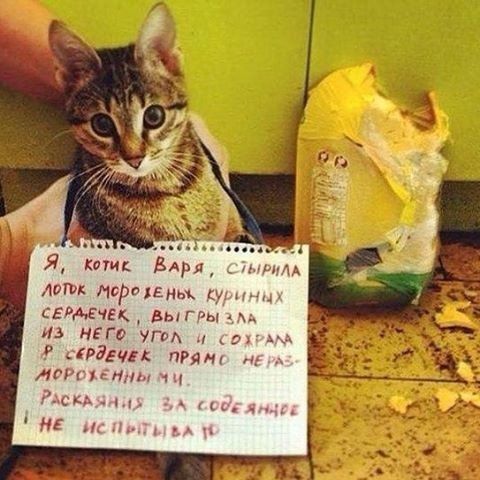 Я, котик Варя, стырила
лоток мороженых куриных
сердечек, выгрызла
из него угол и сожрала
8 сердечек прямо нераз-
мороженными.
Раскаяния за содеянное
не испытываю